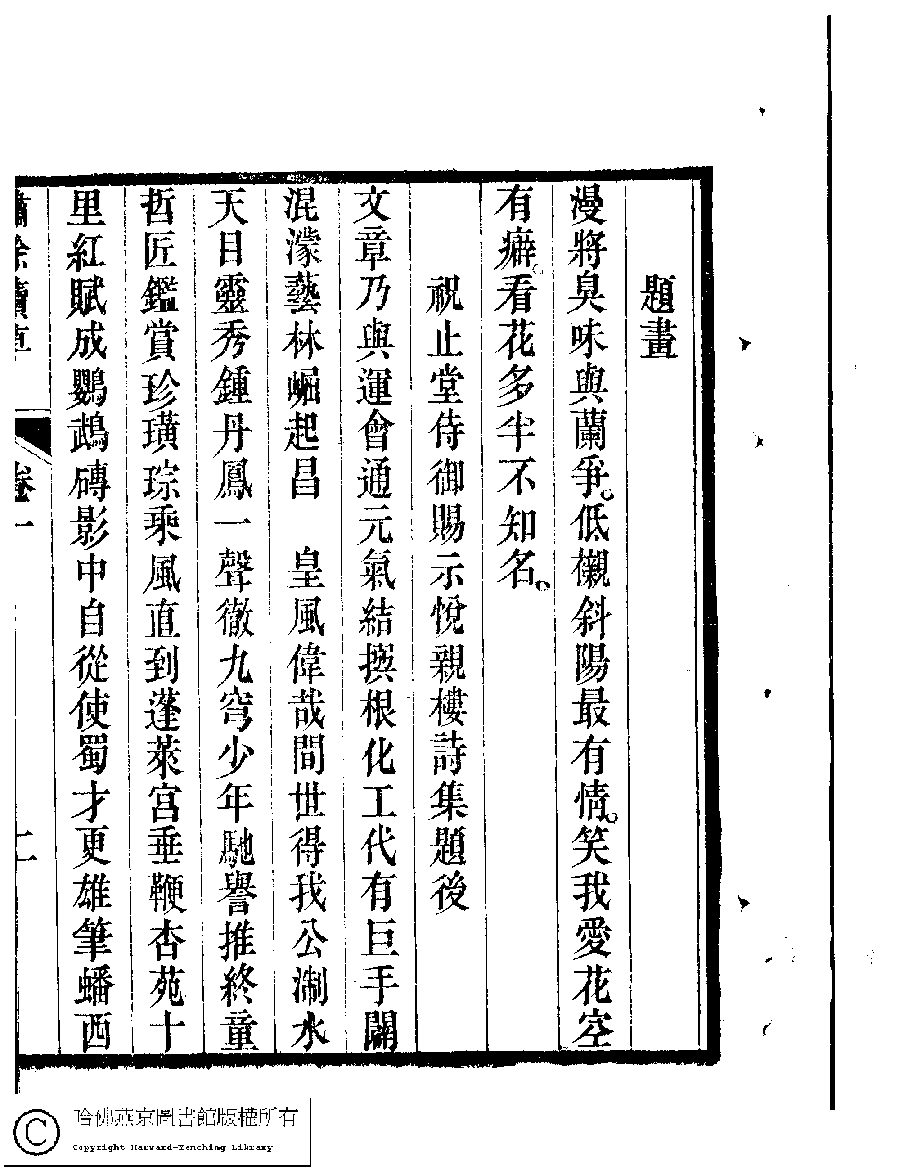 題畫
漫將臭味與蘭爭。低櫬斜陽最有情。笑我愛花空
有癖。看花多半不知名。
祝止堂侍御賜示悅親樓詩集題後
文章乃與運會通元氣結撰根化工代有巨手闢
混濛藝林崛起昌　皇風偉哉間世得我公淛水
天目靈秀鍾丹鳳一聲徹九穹少年馳譽推終童
哲匠鑑賞珍璜琮乘風直到蓬萊宮垂鞭杏苑十
里紅賦成鸚鵡磚影中自從使蜀才更雄筆蟠西
卷一
二
哈佛燕京圖書館版權所有
Copyright Harvard-Yenching Library